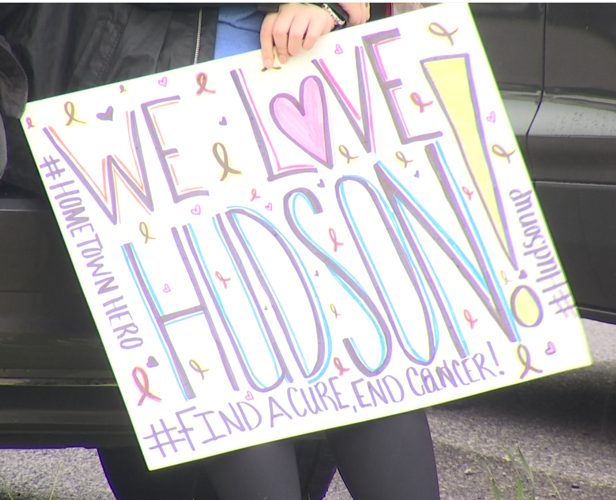 WE LOVE
HUDSON!
#HOMETOWN HERO
#FIND A CURE, END CANCER!